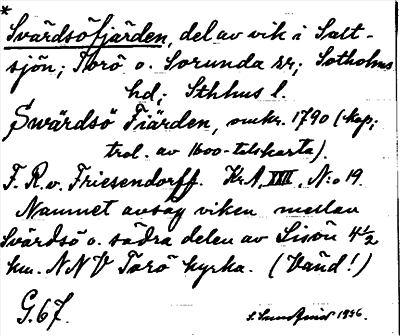 *
Svärdsöfjärden, del av vik i Salt-
sjön; Torö o. Sorunda sr; Sotholms
hd; Sthlms l.
Swärdsö Fiärden, omkr. 1790 (kop;
trol. av 1600-talskarta).
F. R. v. Friesendorff. Kr.A, XXIII, N:o 19.
Namnet avsåg viken mellan
Svärdsö o. södra delen av Lisön 4 1/2
km. NNV Torö kyrka. (Vänd!)
G. 67.
1936.